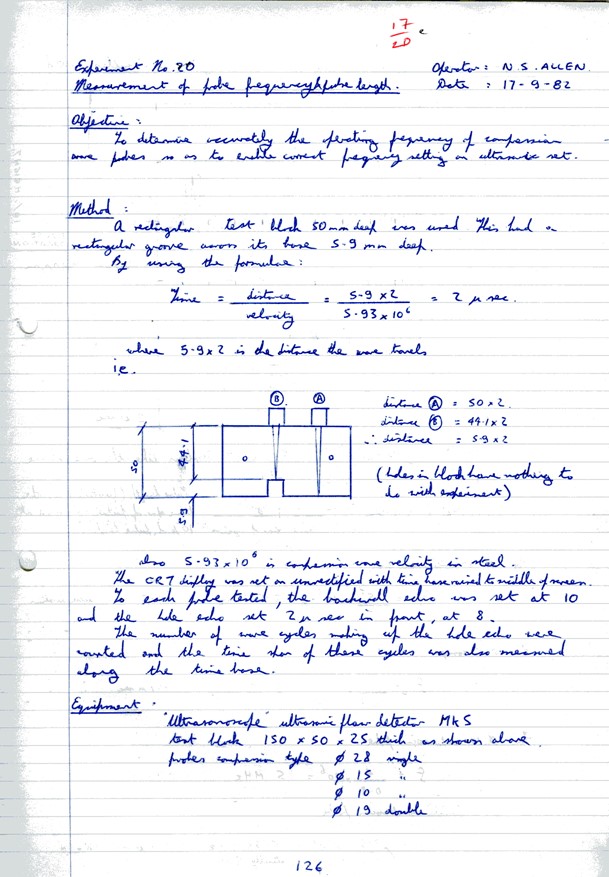 17
20
Experiment No. 20
Operator : N.S. ALLEN.
Measurement of probe frequency & pulse length.
Date : 17-9-82
Objective :
To determine accurately the operating frequency of compression
wave probes so as to enable correct frequency setting on ultrasonic set.
Method :
A rectangular test block 50 mm deep was used This had a
rectangular groove across its base 5.9 mm deep.
By using the formulae :
Time = distance / velocity = 5.9 x 2 / 5.93 x 10⁶ = 2 μ sec.
where 5.9 x 2 is the distance the wave travels
i.e.
B A
distance A = 50 x 2.
distance B = 44.1 x 2
∴ distance = 5.9 x 2
50
44.1
5.9
(holes in block have nothing to
do with experiment)
also 5.93 x 10⁶ is compression wave velocity in steel.
The CRT display was set on unrectified with time base raised to middle of screen.
To each probe tested, the backwall echo was set at 10
and the hole echo set 2 μ sec in front, at 8.
The number of wave cycles making up the hole echo were
counted and the time span of these cycles was also measured
along the time base.
Equipment.
"Ultrasonoscope" ultrasonic flaw detector Mk5
test block 150 x 50 x 25 thick as shown above.
probes compression type ø 28 single
ø 15 "
ø 10 "
ø 19 double
126